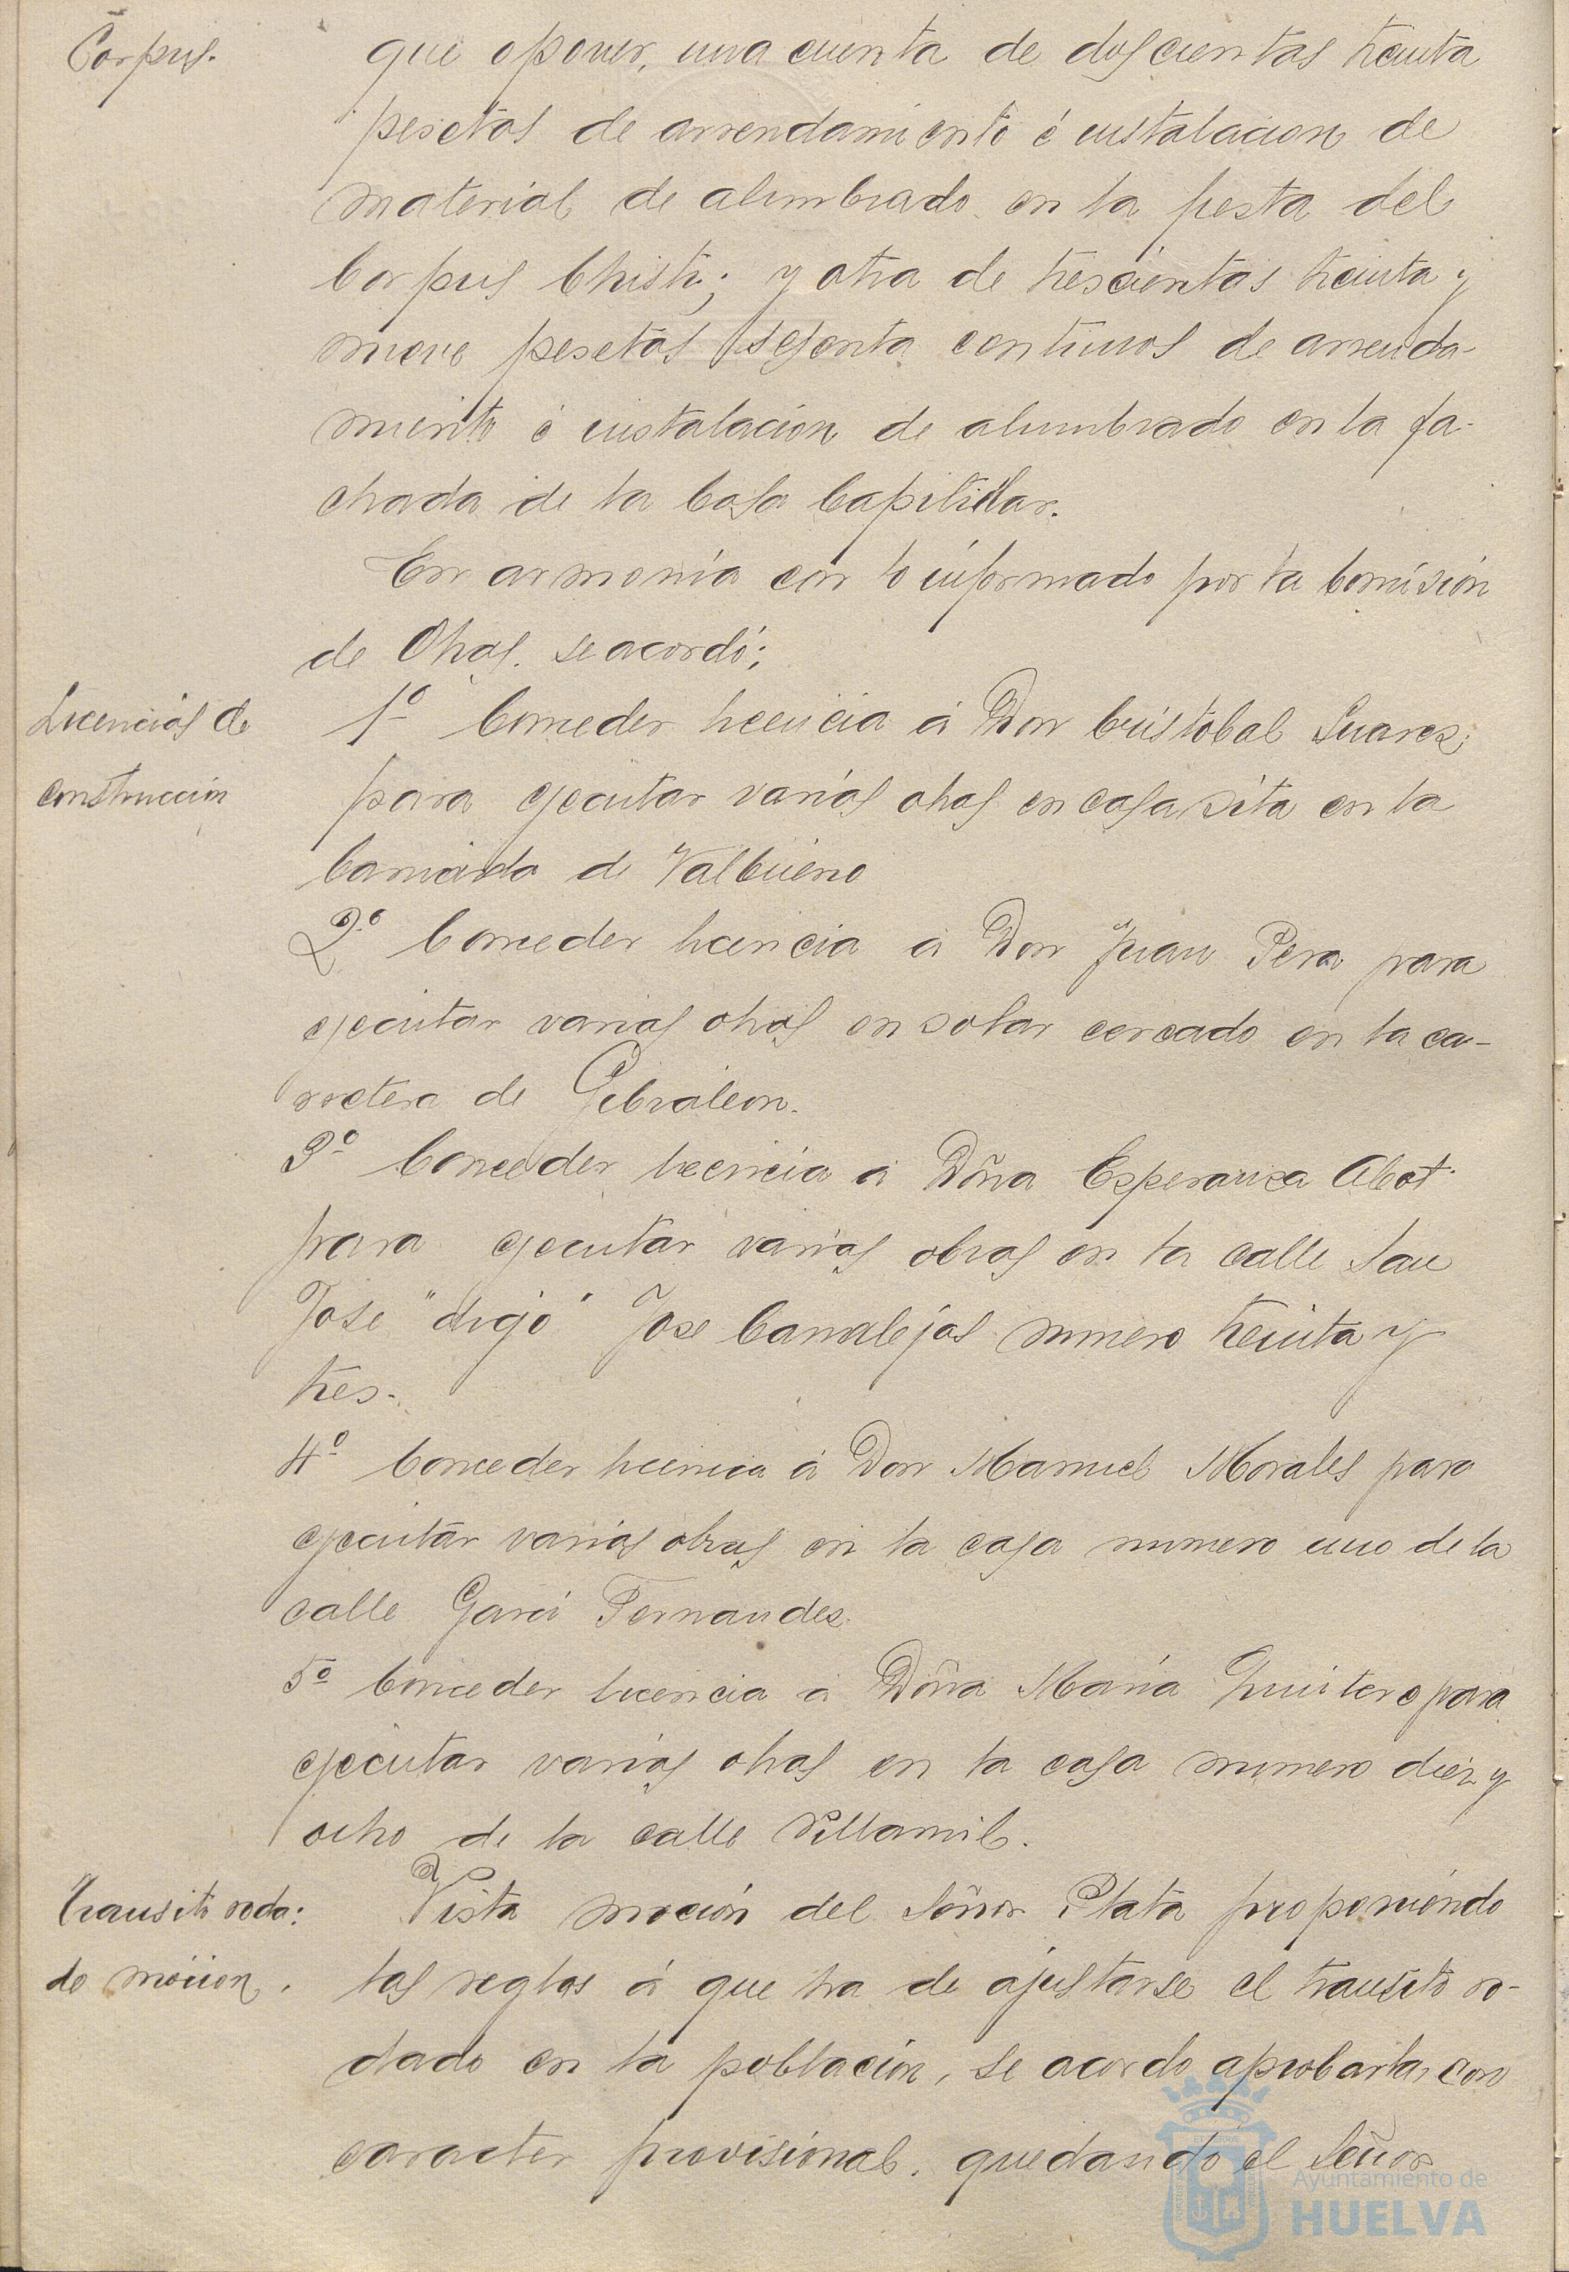 Corpus.
que oponer, una cuenta de doscientas treinta
pesetas de arrendamiento é instalacion de
material de alumbrado en la fiesta del
Corpus Christi; y otra de trescientas treinta y
nueve pesetas sesenta centimos de arrenda-
miento é instalación de alumbrado en la fa-
chada de la Casa Capitular.
En armonía con lo informado por la Comisión
de Obras. se acordó;
Licencias de
construcción
1º Conceder licencia á Don Cristobal Suarez;
para ejecutar varias obras en casa sita en la
barriada de Valbueno
2º Conceder licencia á Don Juan Pera para
ejecutar varias obras en solar cercado en la ca-
rretera de Gibraleon.
3º Conceder licencia á Doña Esperanza Abot
para ejecutar varias obras en la calle San
José "digo" José Canalejas numero treinta y
tres.
4º Conceder licencia á Don Manuel Morales para
ejecutar varias obras en la casa numero uno de la
calle Garci Fernandez.
5º Conceder licencia á Doña María Quintero para
ejecutar varias obras en la casa numero diez y
ocho de la calle Villamil.
Transito roda:
do mocion.
Vista moción del Señor Plata proponiendo
las reglas á que ha de ajustarse el transito ro-
dado en la población, se acordo aprobarlas con
caracter provisional. quedando el Señor
Ayuntamiento de
HUELVA